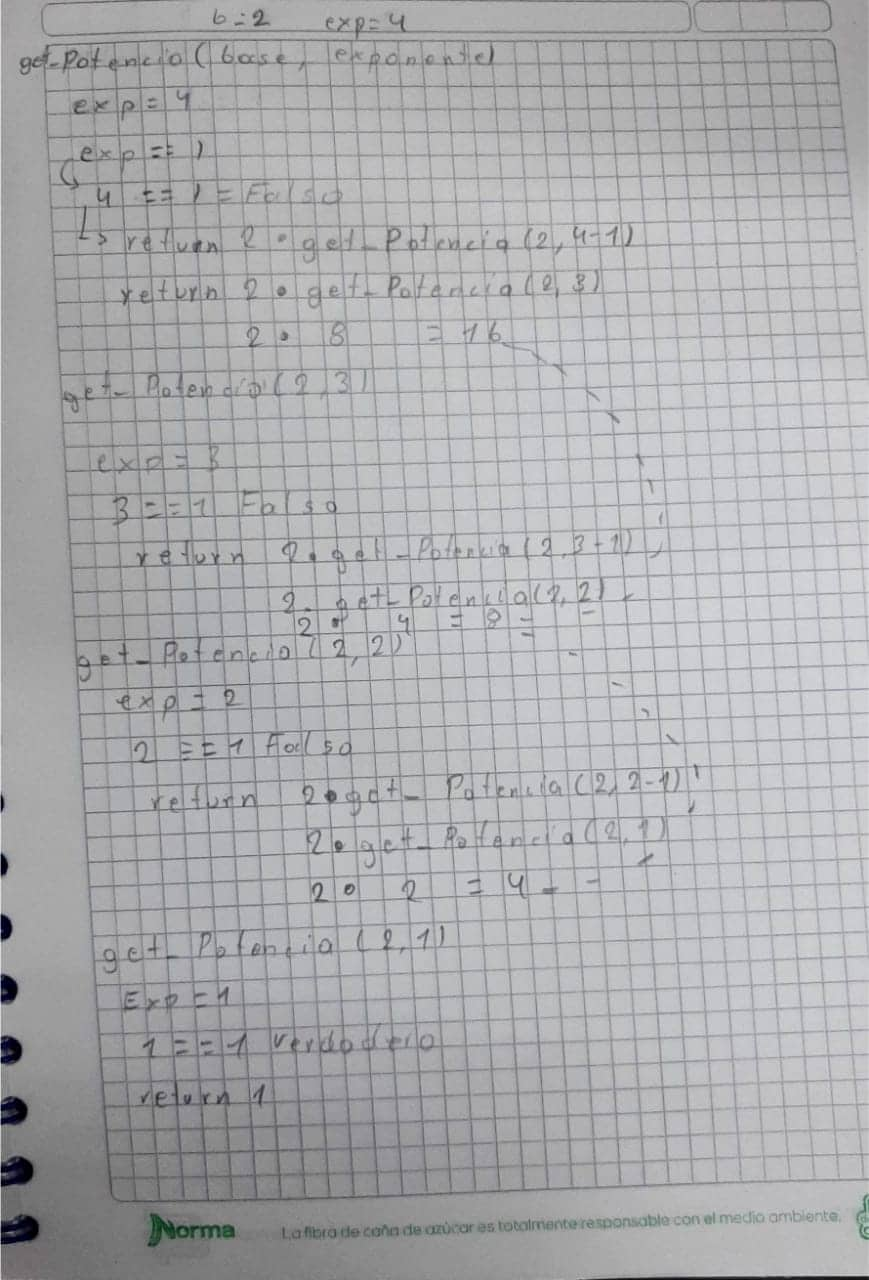 b=2 exp=4
get-Potencia (base, exponente)
exp=4
exp == 1
4 == 1 = Falso
return 2 • get_Potencia (2, 4-1)
return 2 • get_Potencia (2, 3)
2 • 8 = 16
get_Potencia (2,3)
exp = 3
3 == 1 Falso
return 2 • get_Potencia (2, 3-1)
2 • get_Potencia (2, 2)
2 • 4 = 8 =
get_Potencia (2,2)
exp = 2
2 == 1 Falso
return 2 • get_Potencia (2, 2-1)
2 • get_Potencia (2, 1)
2 • 2 = 4
get_Potencia (2,1)
Exp = 1
1 == 1 verdadero
return 1
Norma La fibra de caña de azúcar es totalmente responsable con el medio ambiente.